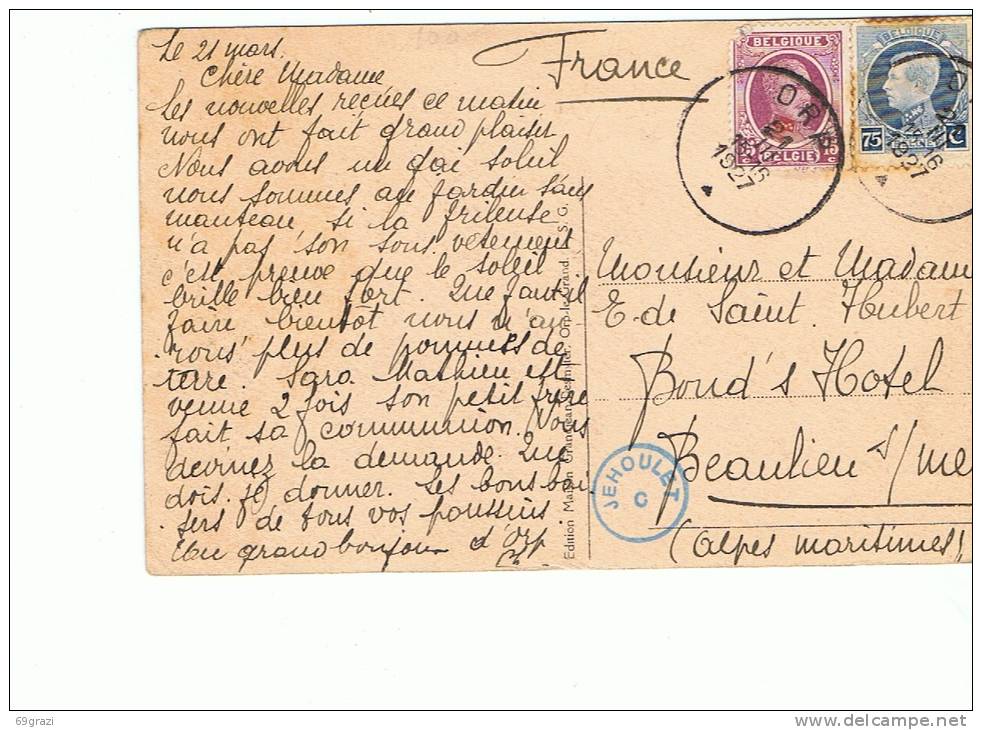 Le 21 mars.
Chère Madame
Les nouvelles reçues ce matin
nous ont fait grand plaisir
Nous avons un gai soleil
nous sommes au jardin sans
manteau si la frileuse
n'a pas son sous vêtement
c'est preuve que le soleil
brille bien fort. Que faut-il
faire bientôt nous n'au
rons plus de pommes de
terre. Sara Mathieu est
venue 2 fois son petit frère
fait sa communion. Vous
devinez la demande. Que
dois-je donner. Les bons bai
sers de tous vos poussins
Un grand bonjour d'Orp
France
BELGIQUE
15 c
BELGIË
BELGIQUE
75 c
ORP
21 III
1927
1927
Edition Maison Grandjean Orp-le-Grand. S. G.
JEHOULET
C
Monsieur et Madam
E. de Saint Hubert
Bond's Hotel
Beaulieu s/me
(Alpes maritimes)
69grazi
www.delcampe.net